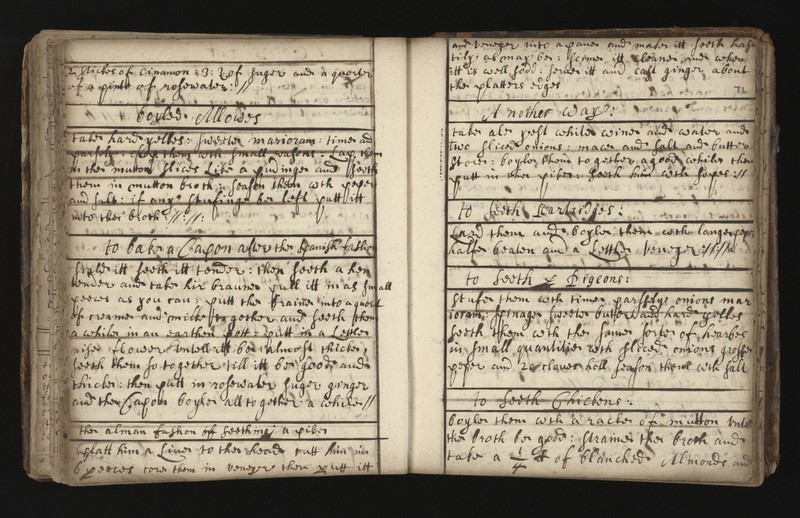 2 stickes of cinamon : 3 : ℥ of suger and a quarter
of a pinte of rosewater ://
boyled Allowes
take hard yelkes : sweete marioram : time and
parsely chop them with small rasons : Lay them
in the mutton slices Like a pudinge and seeth
them in mutton broth : season them with peper
and salt : if any stufinge be left putt itt
into the broth ://://:
to bake a Capon after the Spanish fashion
itt seeth itt tender : then seeth a hen
tender and take hir braune pull itt in as small
peeces as you can : putt the braine into a quart
of creame and together and seeth them
a while in an earthen pott : putt in a Little
rise flower untill itt be almost thicke,
seeth them so together till itt be good and
thicke : then putt in rosewater suger ginger
and the Capon boyle all together a while //
the alman fashon of seething a pike
splatt him a Live to the head cutt him in
6 peeces tore them in veneger then putt itt
and veneger into a panne and make itt seeth has
tily as may be : scime itt cleane and when
itt is well sodd : serve itt and cast ginger about
the platters eges
A nother way :
take ale yest white wine and water and
two sliced onions : mace and salt and butter
store : boyle them to gether a good while then
putt in the pike : seeth him with sopes ://
to seeth Partridges :
Lard them and boyle them with large peper
halfe beaten and a Little veneger ://://
to seeth Pigeons :
Stufe them with time, parsely onions mar
ioram : spinage sweete butter and hard yelkes
seeth them with the same sorte of hearbes
in small quantitie with sliced onions grosse
peper and 20 claves holl season them with salt
to seeth Chickens :
boyle them with a racke of mutton untill
the broth be good : straine the broth and
take a 1/4 ℔ of blanched Almonds and